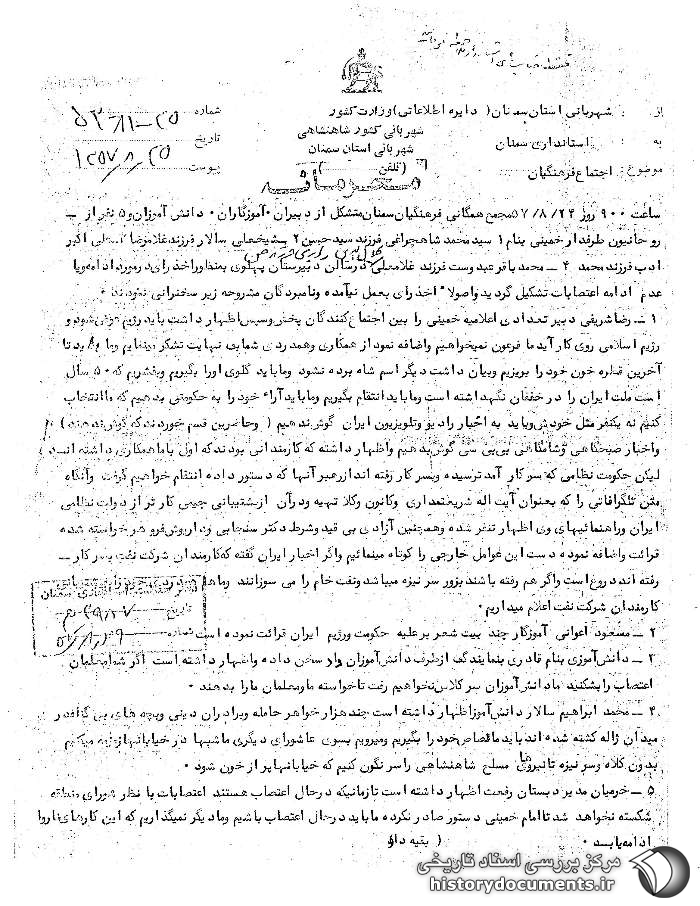 از : شهربانی استان سمنان ( دایره اطلاعاتی ) وزارت کشور
شهربانی کشور شاهنشاهی
شهربانی استان سمنان
به : استانداری سمنان
( تلفن )
موضوع : اجتماع فرهنگیان
شماره ۲۵-۵۳۸۱
تاریخ ۱۳۵۷/۸/۲۵
پیوست
محرمانه
ساعت ۹۰۰ روز ۵۷/۸/۲۴ مجمع همگانی فرهنگیان سمنان متشکل از دبیران ، آموزگاران ، دانش آموزان و ۵ نفر از ـ
روحانیون طرفدار خمینی بنام ۱ سید محمد شاهچراغی فرزند سید حسن ۲ سالار فرزند غلامرضا ۳ علی اکبر
ادب فرزند محمد ۴ ـ محمد باقر عبدوست فرزند غلامعلی در سالن دبیرستان پهلوی بمنظور اخذ رای در مورد ادامه و یا
عدم ادامه اعتصابات تشکیل گردید و اصولا اخذ رای بعمل نیامده و نامبردگان مشروحه زیر سخنرانی نمودند .
۱ ـ رضا شریفی دبیر تعدادی اعلامیه خمینی را بین اجتماع کنندگان پخش و سپس اظهار داشت باید رژیم عوض شود و
رژیم اسلامی روی کار آید ما فرعون نمیخواهیم و اضافه نمود از همکاری و همدردی شما بی نهایت تشکر مینمایم و ما باید تا
آخرین قطره خون خود را بریزیم و بیان داشت دیگر اسم شاه برده نشود و ما باید گلوی او را بگیریم و بفشریم که ۵۰ سال
است ملت ایران را در خفقان نگهداشته است و ما باید انتقام بگیریم و ما باید آراء خود را به حکومتی بدهیم که ما انتخاب
کنیم نه یکنفر مثل خودش و باید به اخبار رادیو و تلویزیون ایران گوش ندهیم ( وحاضرین قسم خوردند که گوش ندهند )
و اخبار صبحگاهی و شامگاهی بی بی سی گوش بدهیم و اظهار داشته که کارمندانی بودند که اول با ما همکاری داشته اند
لیکن حکومت نظامی که سر کار آمد ترسیده و بسر کار رفته اند از رهبر آنها که دستور داده انتقام خواهیم گرفت وآنگاه
متن تلگرافاتی را که بعنوان آیت اله شریعتمداری وکانون وکلا تهیه و درآن از پشتیبانی جیمی کارتر از دولت نظامی
ایران و راهنمائیهای وی اظهار تنفر شده و همچنین آزادی بی قید و شرط دکتر سنجابی و داریوش فروهر خواسته شده
قرائت و اضافه نموده دست این عوامل خارجی را کوتاه مینمائیم و اگر اخبار ایران گفته که کارمندان شرکت نفت بسر کار ـ
رفته اند دروغ است و اگر هم رفته باشند بزور سر نیزه میباشد و نفت خام را می سوزانند
کارمندان شرکت نفت اعلام میداریم .
۲ ـ مسعود اعوانی آموزگار چند بیت شعر بر علیه حکومت و رژیم ایران قرائت نموده است
۳ ـ دانش آموزی بنام قادری بنمایندگی از طرف دانش آموزان داد سخن داده و اظهار داشته است اگر شما معلمان
اعتصاب را بشکنید ما دانش آموزان سر کلاس نخواهیم رفت تا خواسته ما و معلمان ما را بدهند .
۴ ـ محمد ابراهیم سالار دانش آموز اظهار داشته است چند هزار خواهر حامله و برادران دینی و بچه های بی گناه در
میدان ژاله کشته شده اند باید ما قصاص خود را بگیریم و میرویم بسوی عاشورای دیگری ما شبها در خیابانها رژه میکنیم
بدون کلاه و سر نیزه تا نیروهای مسلح شاهنشاهی را سرنگون کنیم که خیابانها پر از خون شود .
۵ ـ خرمیان مدیر دبستان رفعت اظهار داشته است تا زمانیکه در حال اعتصاب هستند اعتصابات با نظر شورای منطقه
شکسته نخواهد شد تا امام خمینی دستور صادر نکرده ما باید در حال اعتصاب باشیم و ما دیگر نمیگذاریم که این کارهای ناروا
ادامه یابد .
( بقیه دارد
مرکز بررسی اسناد تاریخی
historydocuments.ir